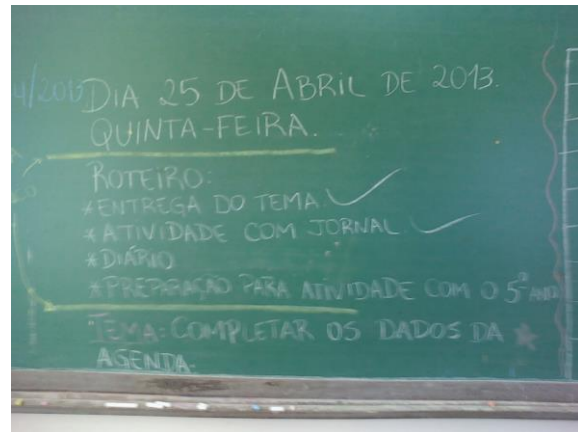 4/2013
DIA 25 DE ABRIL DE 2013.
QUINTA-FEIRA.
ROTEIRO:
*ENTREGA DO TEMA.
*ATIVIDADE COM JORNAL.
*DIÁRIO
*PREPARAÇÃO PARA ATIVIDADE COM O 5º ANO
TEMA: COMPLETAR OS DADOS DA
AGENDA.